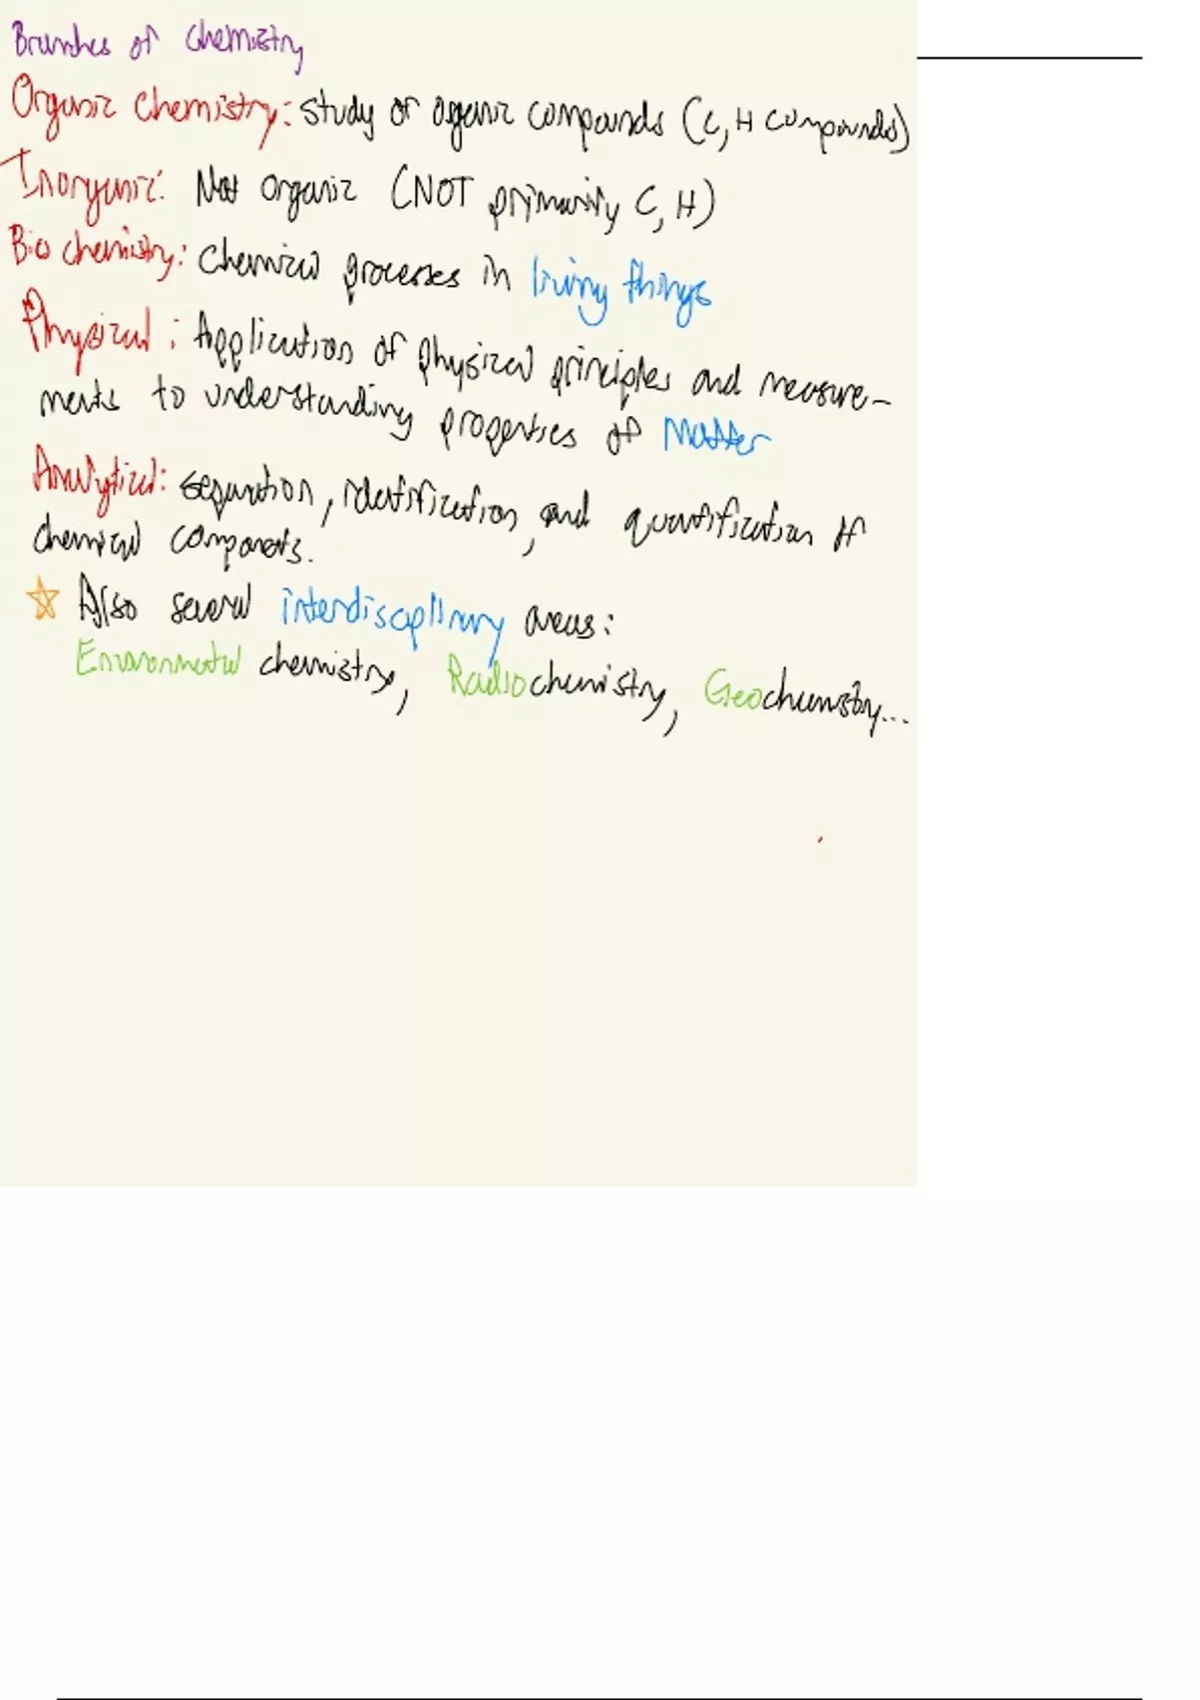 Branches of Chemistry
Organic Chemistry: study of organic compounds (C, H compounds)
Inorganic: Not organic (NOT primarily C, H)
Bio chemistry: Chemical processes in living things
Physical: Application of physical principles and measure-
ments to understanding properties of Matter
Analytical: separation, identification, and quantification of
chemical components.
☆ Also several interdisciplinary areas:
Environmental chemistry, Radiochemistry, Geochemistry...